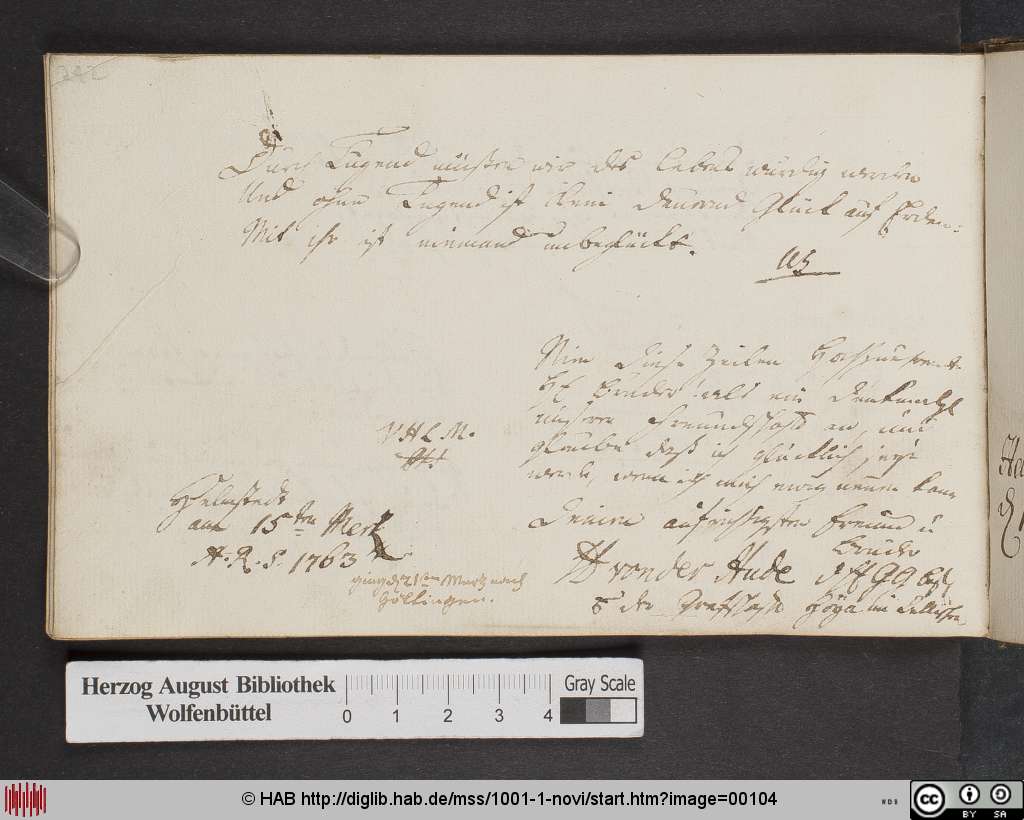 242
Durch Tugend müßen wir des lebens würdig werden
Und ohne Tugend ist kein daurend Glück auf Erden:
Mit ihr ist niemand unbeglückt.
Uz
Nim diese Zeilen
Bruder als ein Denkmahl
unserer Freundschafft an, und
glaube daß ich glücklich seyn
werde, wenn ich mich ewig nennen kann
Deinen aufrichtigsten Freund u
Bruder
V H L M.
Helmstedt
am 15ten Mertz
A. R. S. 1763
ging d 21ten Martz nach
Göttingen.
W von der Hude
der Grafschafft Hoya im
Herzog August Bibliothek
Wolfenbüttel
0 1 2 3 4
Gray Scale
© HAB http://diglib.hab.de/mss/1001-1-novi/start.htm?image=00104
CC BY SA